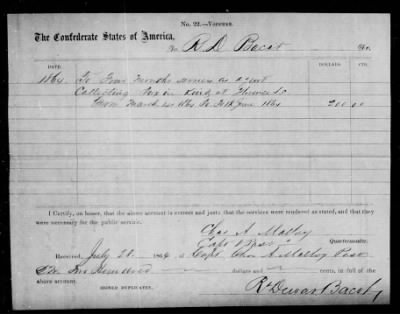 No. 22.—VOUCHER.
The Confederate States of America,
To R. D. Bacot Dr.
DATE. DOLLARS. CTS.
1864 To Four Months services as agent
Collecting Tax in Kind at Florence S.C.
from March 1864 to July 1864 200 00
I Certify, on honor, that the above account is correct and just; that the services were rendered as stated, and that they
were necessary for the public service.
Chas A. Malloy
Capt
Quartermaster.
Received, July 28 1864 of Capt. Chas A. Malloy
Two Hundred dollars and cents, in full of the
above account.
SIGNED DUPLICATES.
Rd Bacot